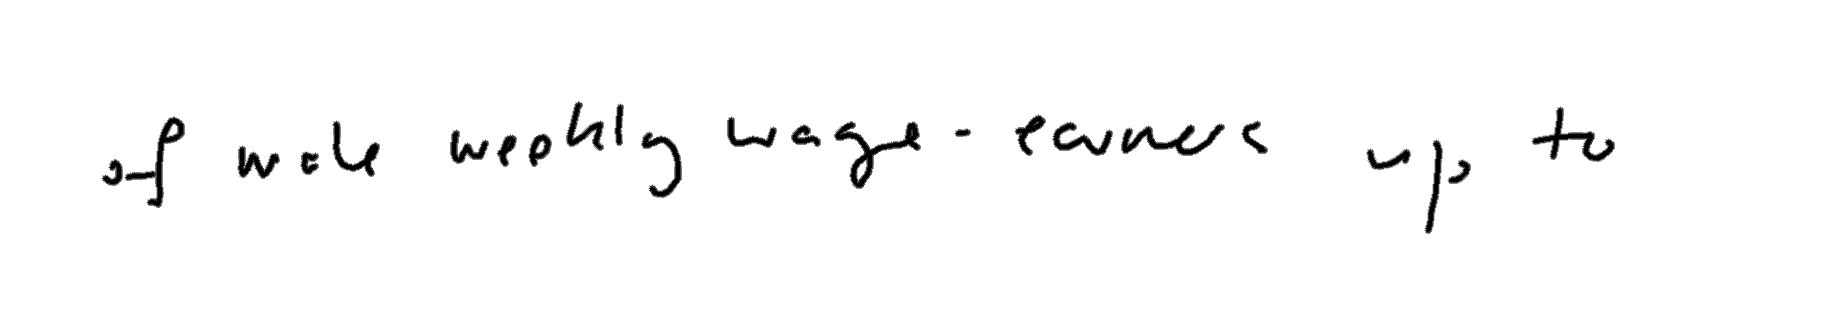 of male weekly wage-earners up to